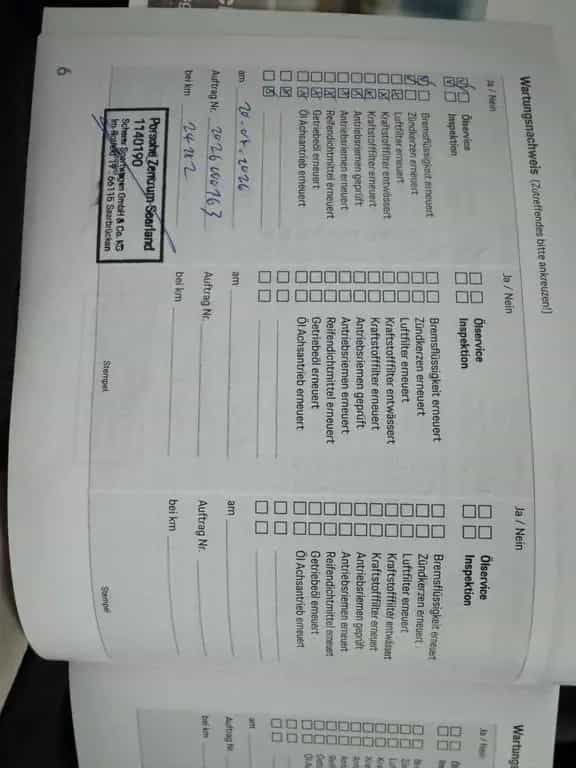 Wartungsnachweis (Zutreffendes bitte ankreuzen!)
Ja / Nein
Ölservice
Inspektion
Bremsflüssigkeit erneuert
Zündkerzen erneuert
Luftfilter erneuert
Kraftstofffilter entwässert
Kraftstofffilter erneuert
Antriebsriemen geprüft
Antriebsriemen erneuert
Reifendichtmittel erneuert
Getriebeöl erneuert
Öl Achsantrieb erneuert
am
Auftrag Nr.
bei km
Porsche Zentrum Saarland
1140190
66116 Saarbrücken
6
Ja / Nein
Ölservice
Inspektion
Bremsflüssigkeit erneuert
Zündkerzen erneuert
Luftfilter erneuert
Kraftstofffilter entwässert
Kraftstofffilter erneuert
Antriebsriemen geprüft
Antriebsriemen erneuert
Reifendichtmittel erneuert
Getriebeöl erneuert
Öl Achsantrieb erneuert
am
Auftrag Nr.
bei km
Stempel
Ja / Nein
Ölservice
Inspektion
Bremsflüssigkeit erneuert
Zündkerzen erneuert
Luftfilter erneuert
Kraftstofffilter entwässert
Kraftstofffilter erneuert
Antriebsriemen geprüft
Antriebsriemen erneuert
Reifendichtmittel erneuert
Getriebeöl erneuert
Öl Achsantrieb erneuert
am
Auftrag Nr.
bei km
Stempel
Ja / Nein
am
Auftrag Nr.
bei km